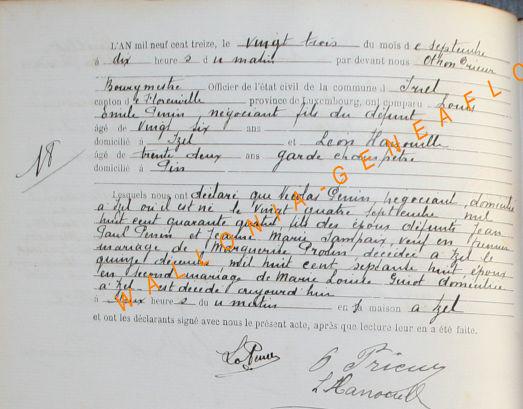 L'AN mil neuf cent treize, le vingt trois du mois de septembre
à dix heures du matin par devant nous Othon Prieur
Bourgmestre Officier de l'état civil de la commune d'Izel
canton de Florenville province de Luxembourg, ont comparu Louis
Emile Penin négociant fils du défunt
âgé de vingt six ans
domicilié à Izel et Léon Hanouille
âgé de trente deux ans garde champêtre
domicilié à Pin
N 8
Lesquels nous ont déclaré que Nicolas Penin, négociant, domicilié
à Izel où il est né le vingt quatre septembre mil
huit cent quarante quatre, fils des époux défunts Jean
Paul Penin et Jeanne Marie Jampaux, veuf en premier
mariage de Marguerite décédée à Izel le
quinze décembre mil huit cent septante huit, époux
en second mariage de Marie Louise domiciliée
à Izel est décédé aujourd'hui
à heures du matin en sa maison à Izel
et ont les déclarants signé avec nous le présent acte, après que lecture leur en a été faite.
O Prieur
L Hanouille
WALLONIA-GENEAFLO